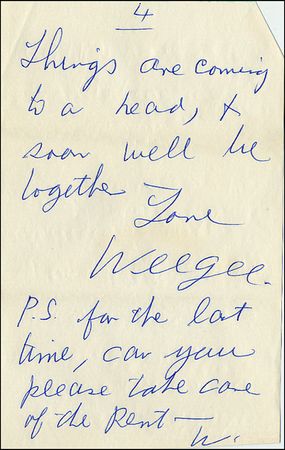 4
Things are coming
to a head, &
soon well be
together
Love
Weegee.
P.S. for the last
time, can you
please take care
of the Rent—
W.